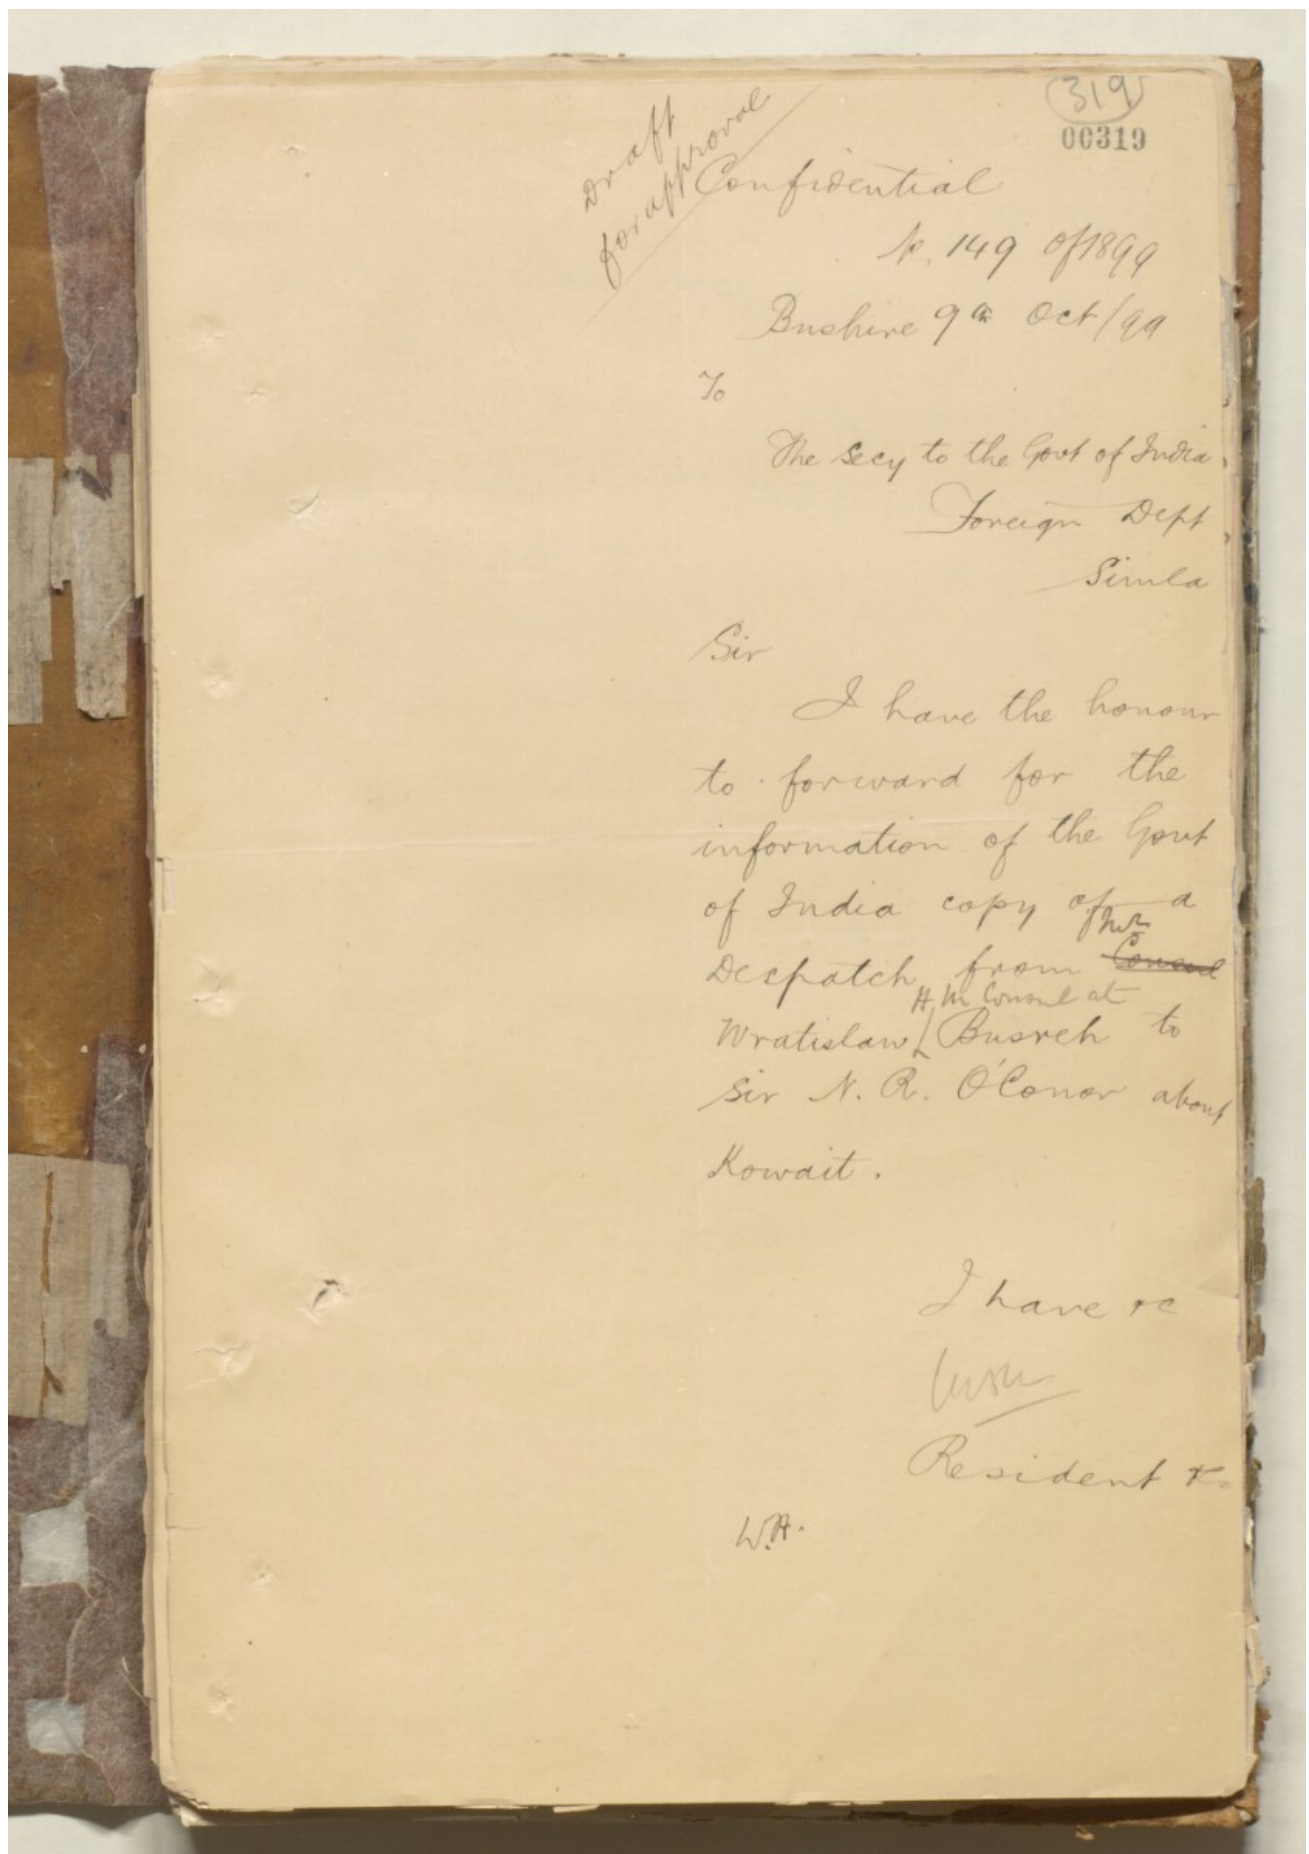 319
00319
Draft
for approval
Confidential
No. 149 of 1899
Bushire 9th Oct/99
To
The Secy to the Govt of India,
Foreign Dept,
Simla
Sir
I have the honour
to forward for the
information of the Govt
of India copy of a
Mr
Despatch from Consul
H. M Consul at
Wratislaw Busreh to
Sir N. R. O'Conor about
Kowait.
I have &c
Resident &c
W.H.